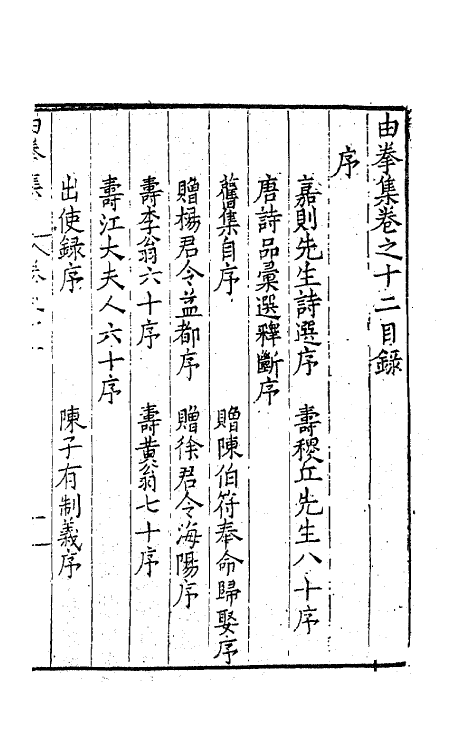 由拳集卷之十二目錄
序
嘉則先生詩選序　壽稷丘先生八十序
唐詩品彙選釋斷序
舊集自序　贈陳伯符奉命歸娶序
贈楊君令益都序　贈徐君令海陽序
壽李翁六十序　壽黃翁七十序
壽江太夫人六十序
出使録序　陳子有制義序
由拳集